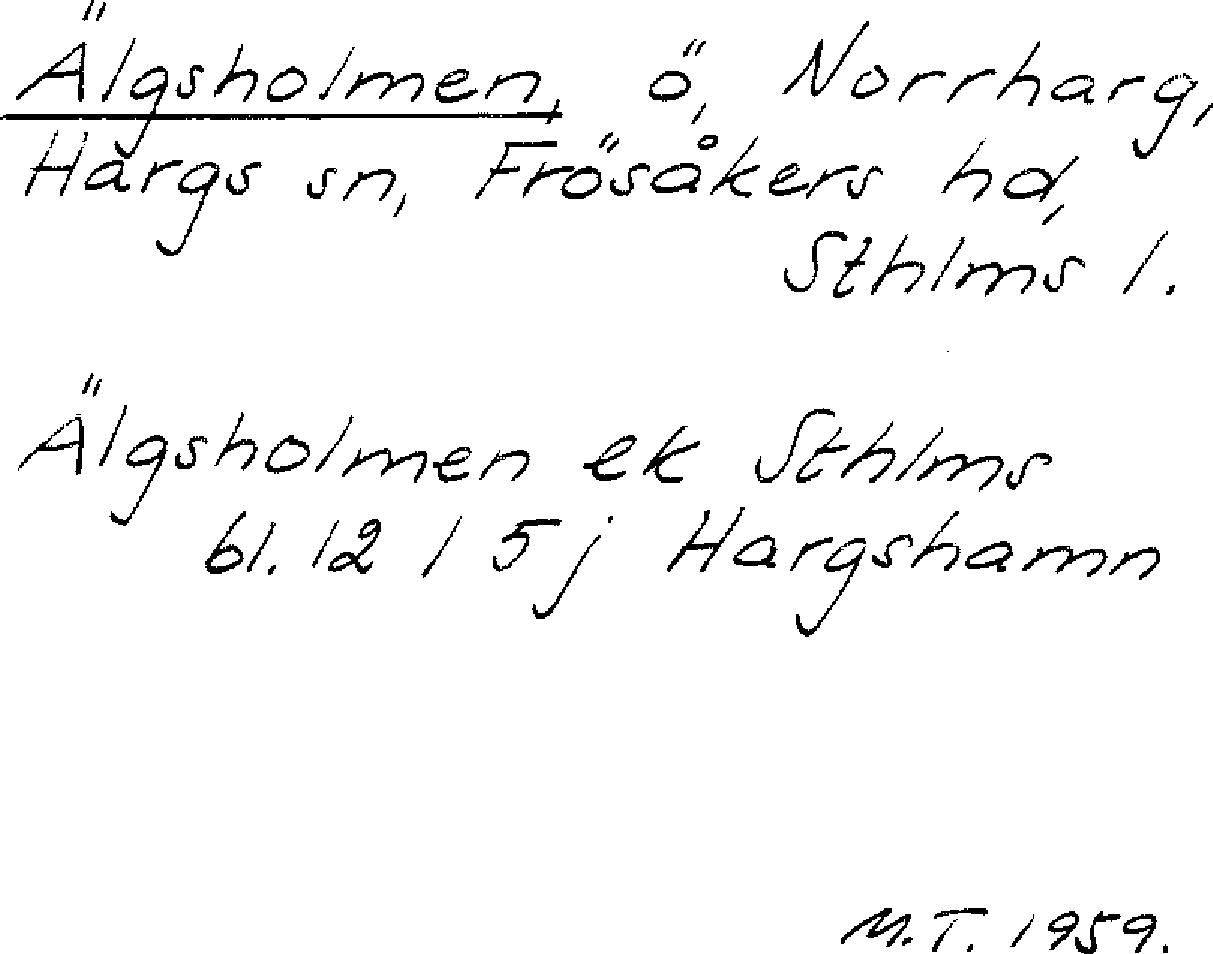 Älgsholmen, ö, Norrharg,
Hargs sn, Frösåkers hd,
Sthlms l.
Älgsholmen ek Sthlms
bl. 12 I 5j Hargshamn
M.T. 1959.